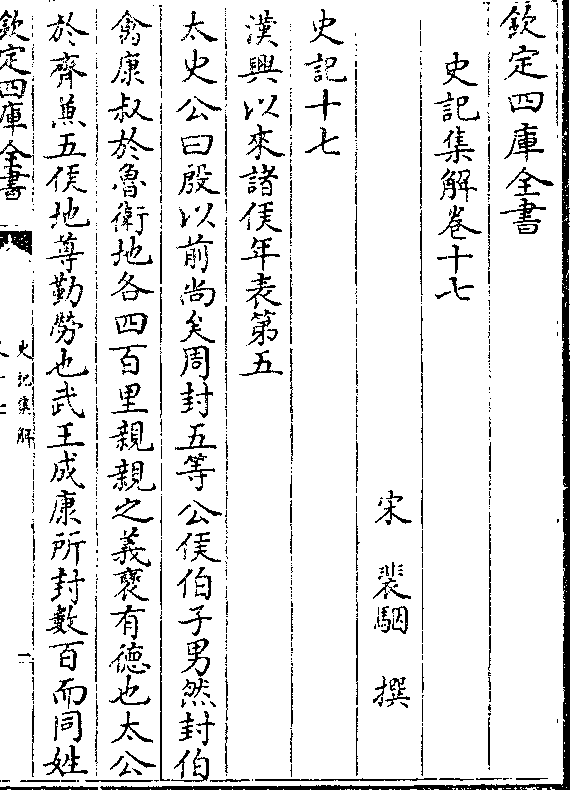 欽定四庫全書
史記集解卷十七
宋 裴駰 撰
史記十七
漢興以來諸侯年表第五
太史公曰殷以前尚矣周封五等公侯伯子男然封伯
禽康叔於魯衛地各四百里親親之義襃有德也太公
於齊兼五侯地尊勤勞也武王成康所封數百而同姓
欽定四庫全書
史記集解